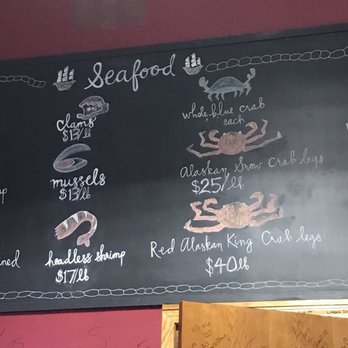 Seafood
clams
$13/lb
mussels
$13/lb
headless shrimp
$17/lb
whole blue crab
each
Alaskan Snow Crab legs
$25/lb
Red Alaskan King Crab legs
$40lb